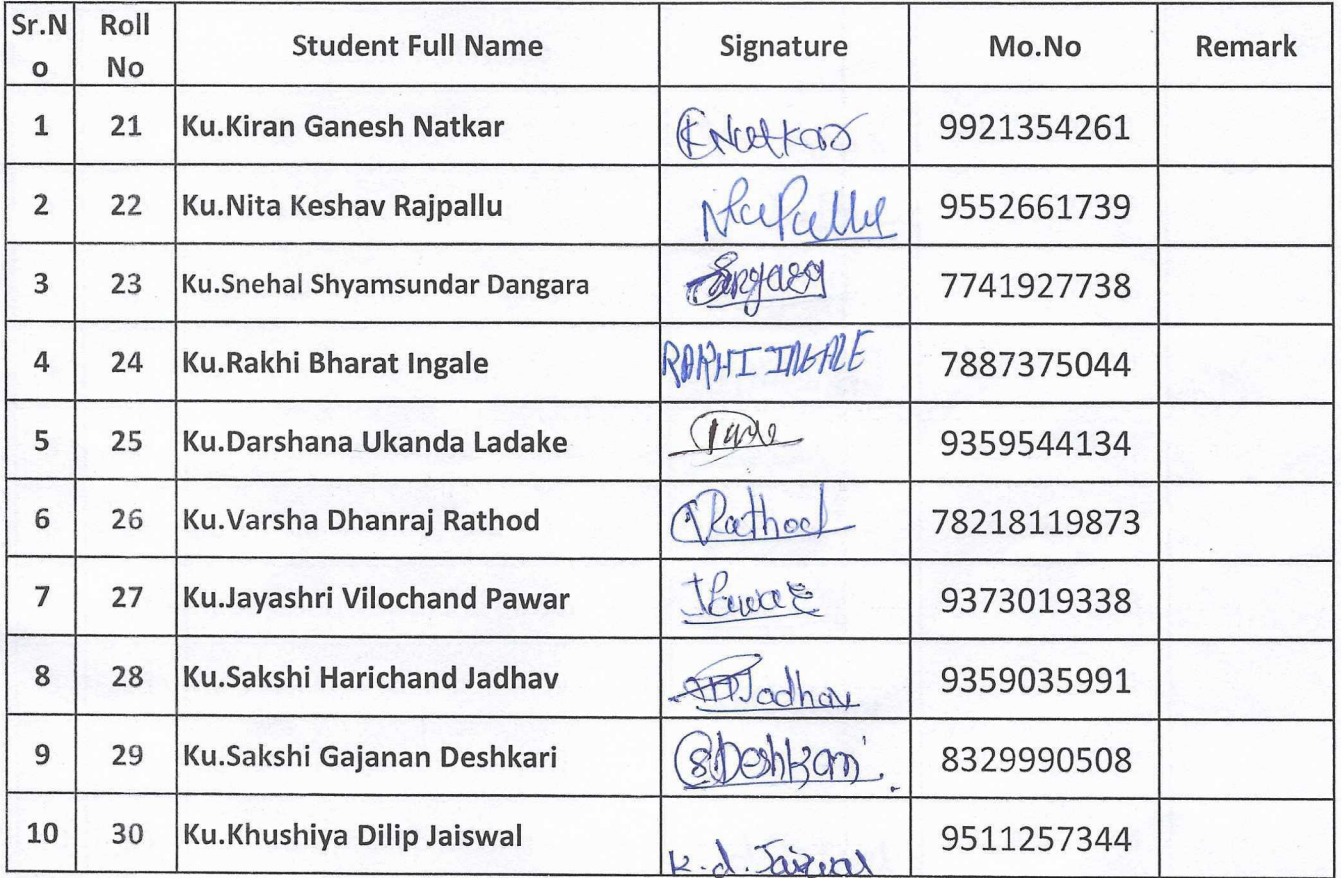 Sr.N
o Roll
No Student Full Name Signature Mo.No Remark
1 21 Ku.Kiran Ganesh Natkar KNatkar 9921354261
2 22 Ku.Nita Keshav Rajpallu 9552661739
3 23 Ku.Snehal Shyamsundar Dangara 7741927738
4 24 Ku.Rakhi Bharat Ingale RAKHI INGALE 7887375044
5 25 Ku.Darshana Ukanda Ladake 9359544134
6 26 Ku.Varsha Dhanraj Rathod VRathod 78218119873
7 27 Ku.Jayashri Vilochand Pawar JPawar 9373019338
8 28 Ku.Sakshi Harichand Jadhav Jadhav 9359035991
9 29 Ku.Sakshi Gajanan Deshkari SDeshkari 8329990508
10 30 Ku.Khushiya Dilip Jaiswal K.d.Jaiswal 9511257344